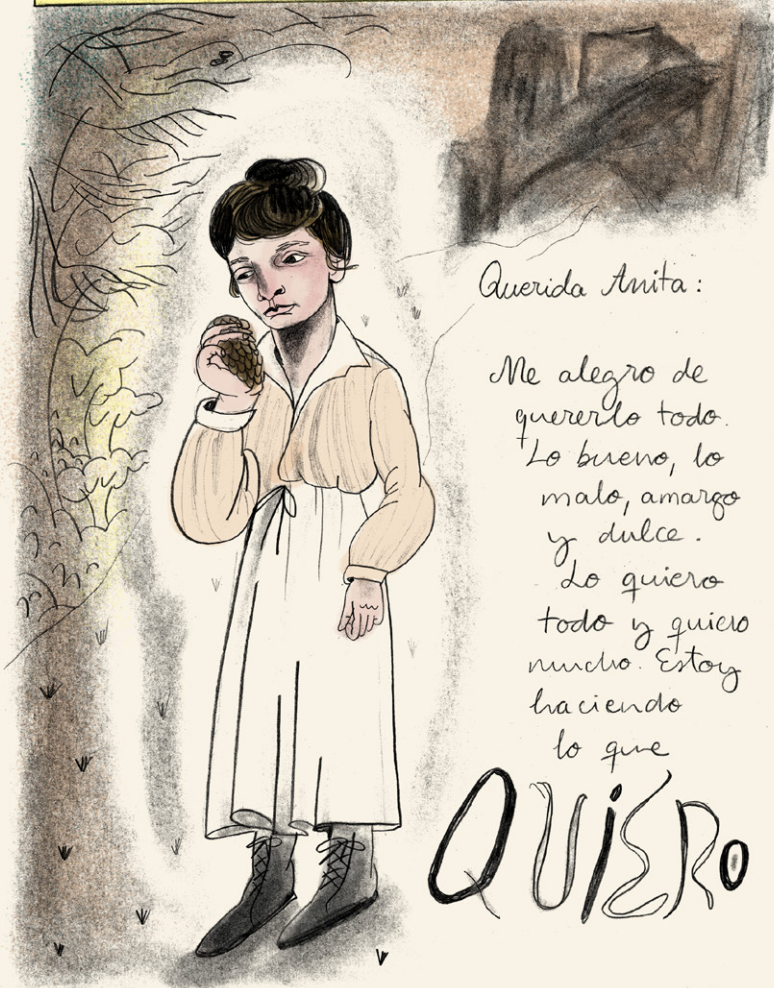 Querida Anita:
Me alegro de
quererlo todo.
Lo bueno, lo
malo, amargo
y dulce.
Lo quiero
todo y quiero
mucho. Estoy
haciendo
lo que
QUiERo